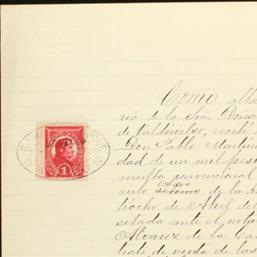 Como alba
ria de la Sra. Doña
de Valdivielso, recibí
Don Pablo Martine
dad de un mil pes
multa convencional
auto
tiocho de Abril de
sitada ante el nota
Alvarez de la Ca
trato de venta de las
1